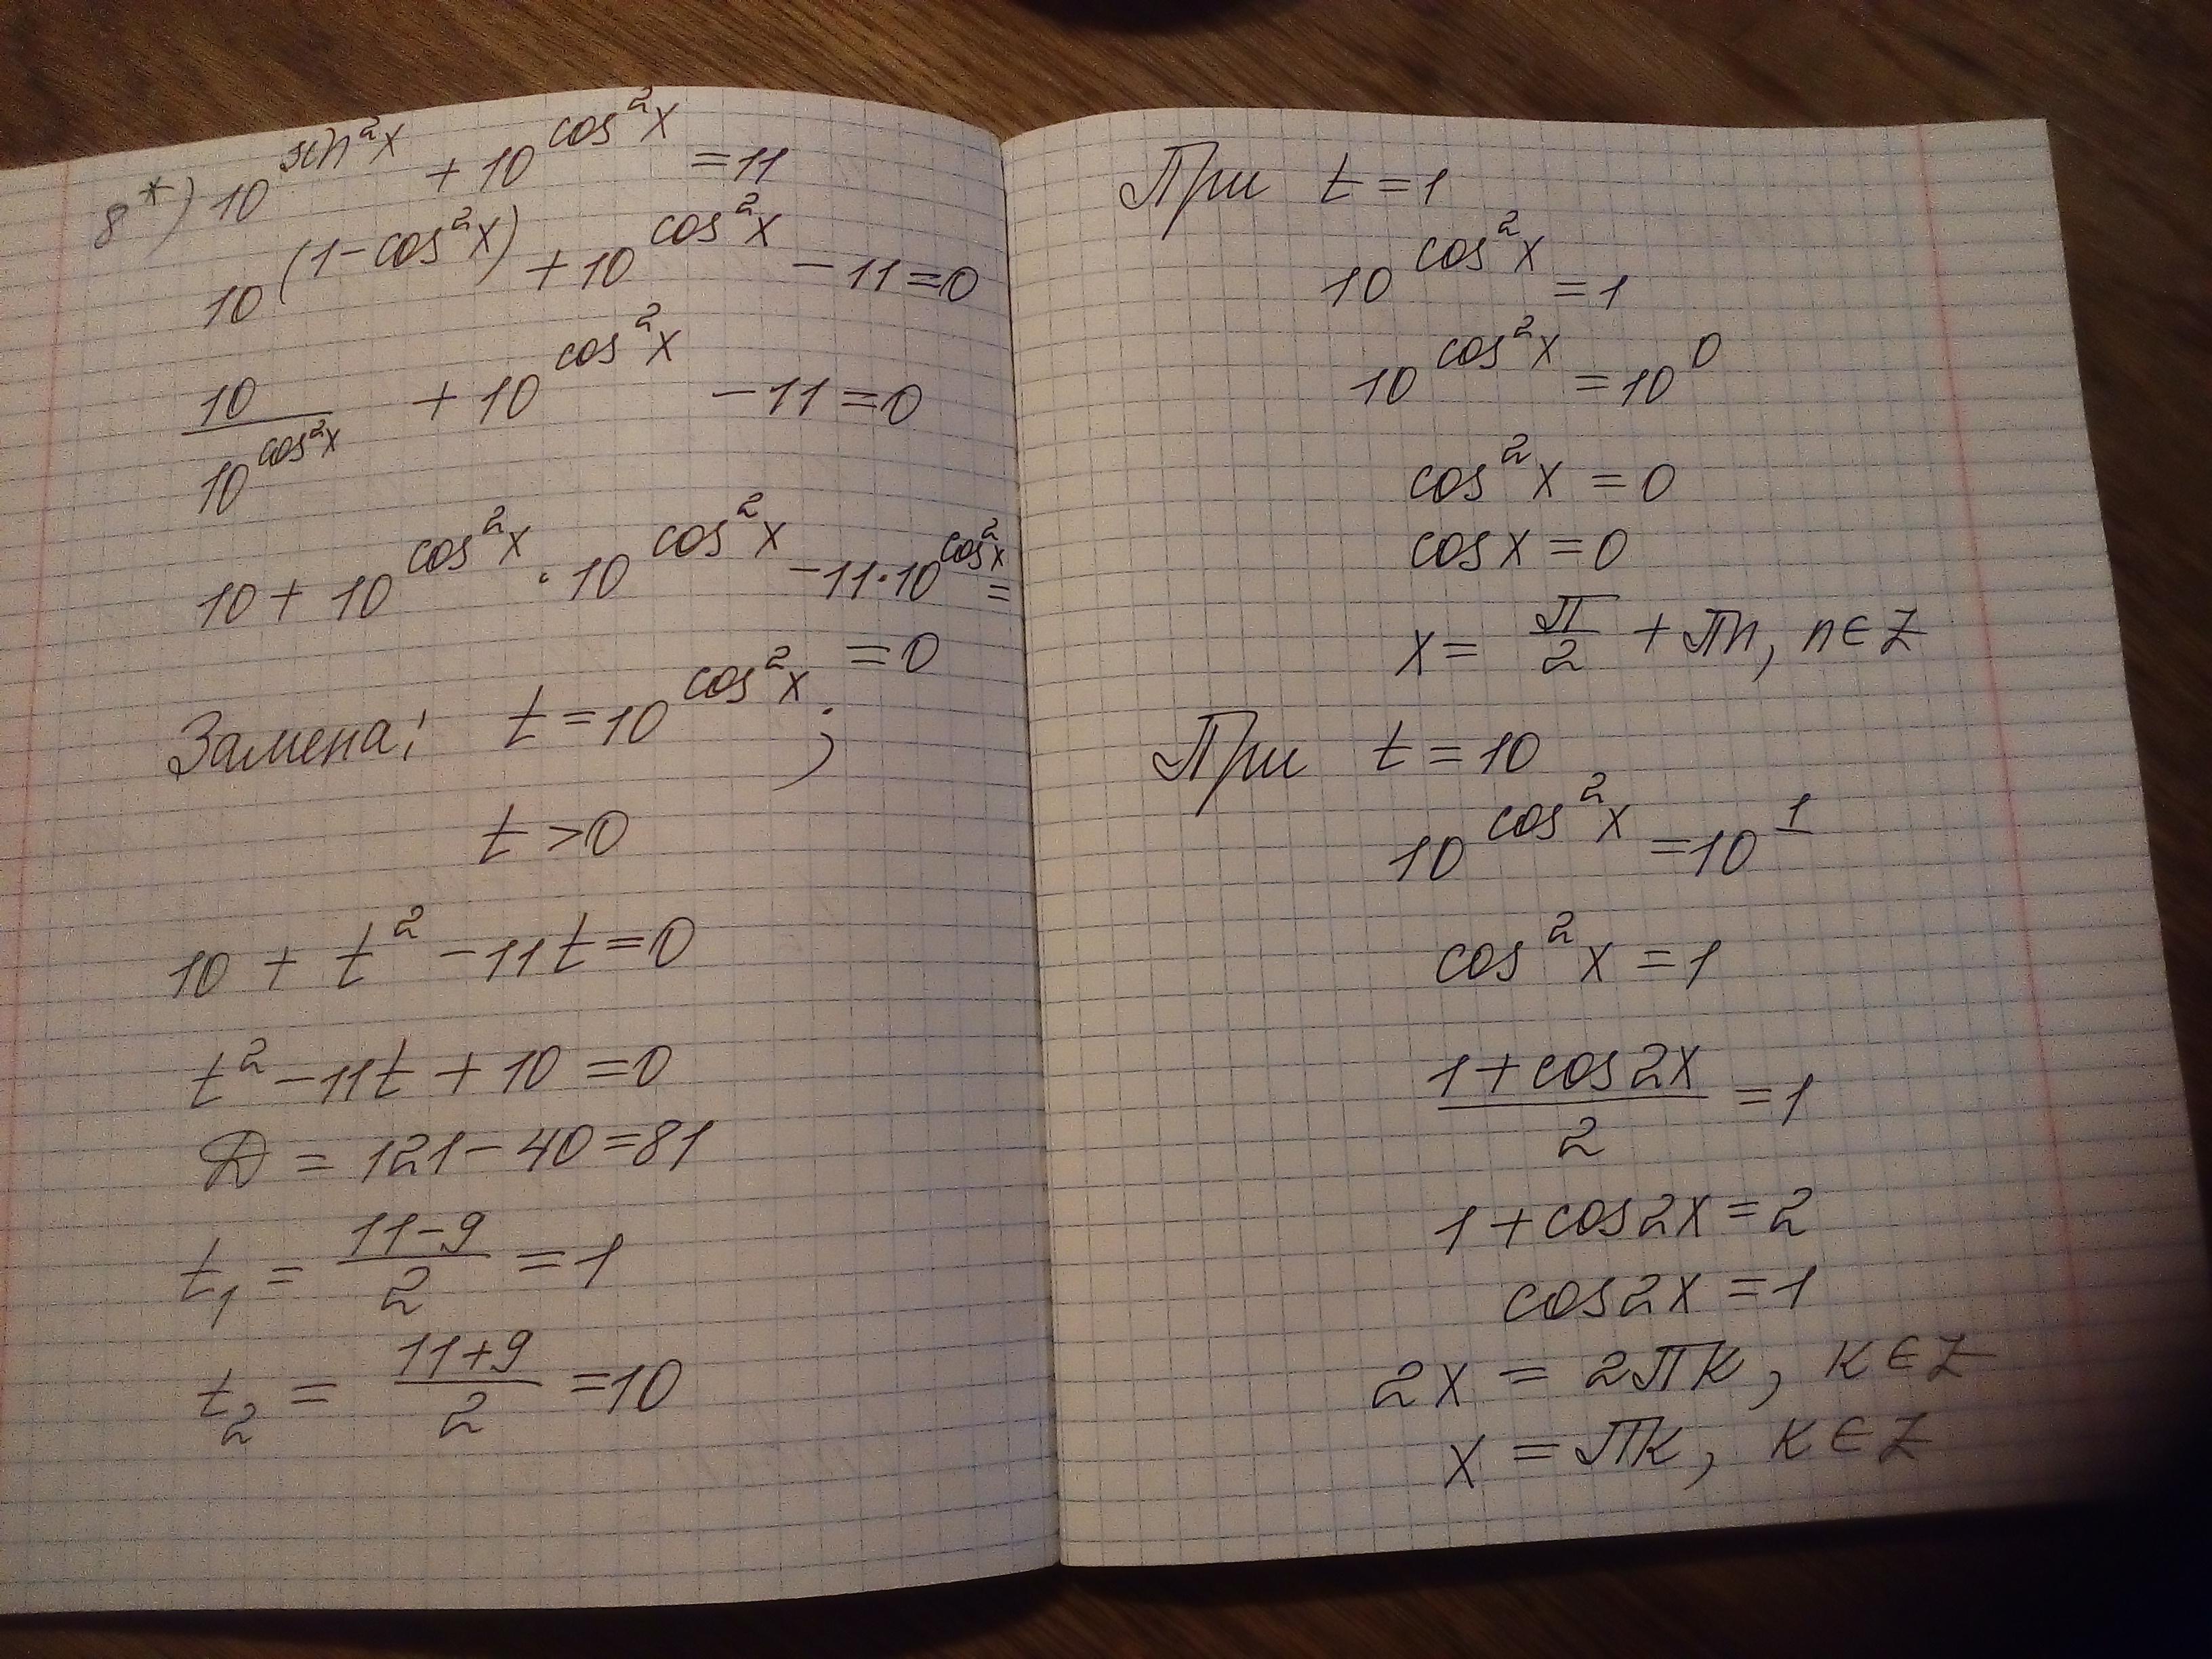 8*) 10^(sin²x) + 10^(cos²x) = 11
10^(1-cos²x) + 10^(cos²x) - 11 = 0
10/10^(cos²x) + 10^(cos²x) - 11 = 0
10 + 10^(cos²x) · 10^(cos²x) - 11·10^(cos²x) =
= 0
Замена: t = 10^(cos²x);
t > 0
10 + t² - 11t = 0
t² - 11t + 10 = 0
D = 121 - 40 = 81
t₁ = (11-9)/2 = 1
t₂ = (11+9)/2 = 10
При t = 1
10^(cos²x) = 1
10^(cos²x) = 10^0
cos²x = 0
cosx = 0
x = π/2 + πn, n∈Z
При t = 10
10^(cos²x) = 10^1
cos²x = 1
(1+cos2x)/2 = 1
1+cos2x = 2
cos2x = 1
2x = 2πk, k∈Z
x = πk, k∈Z